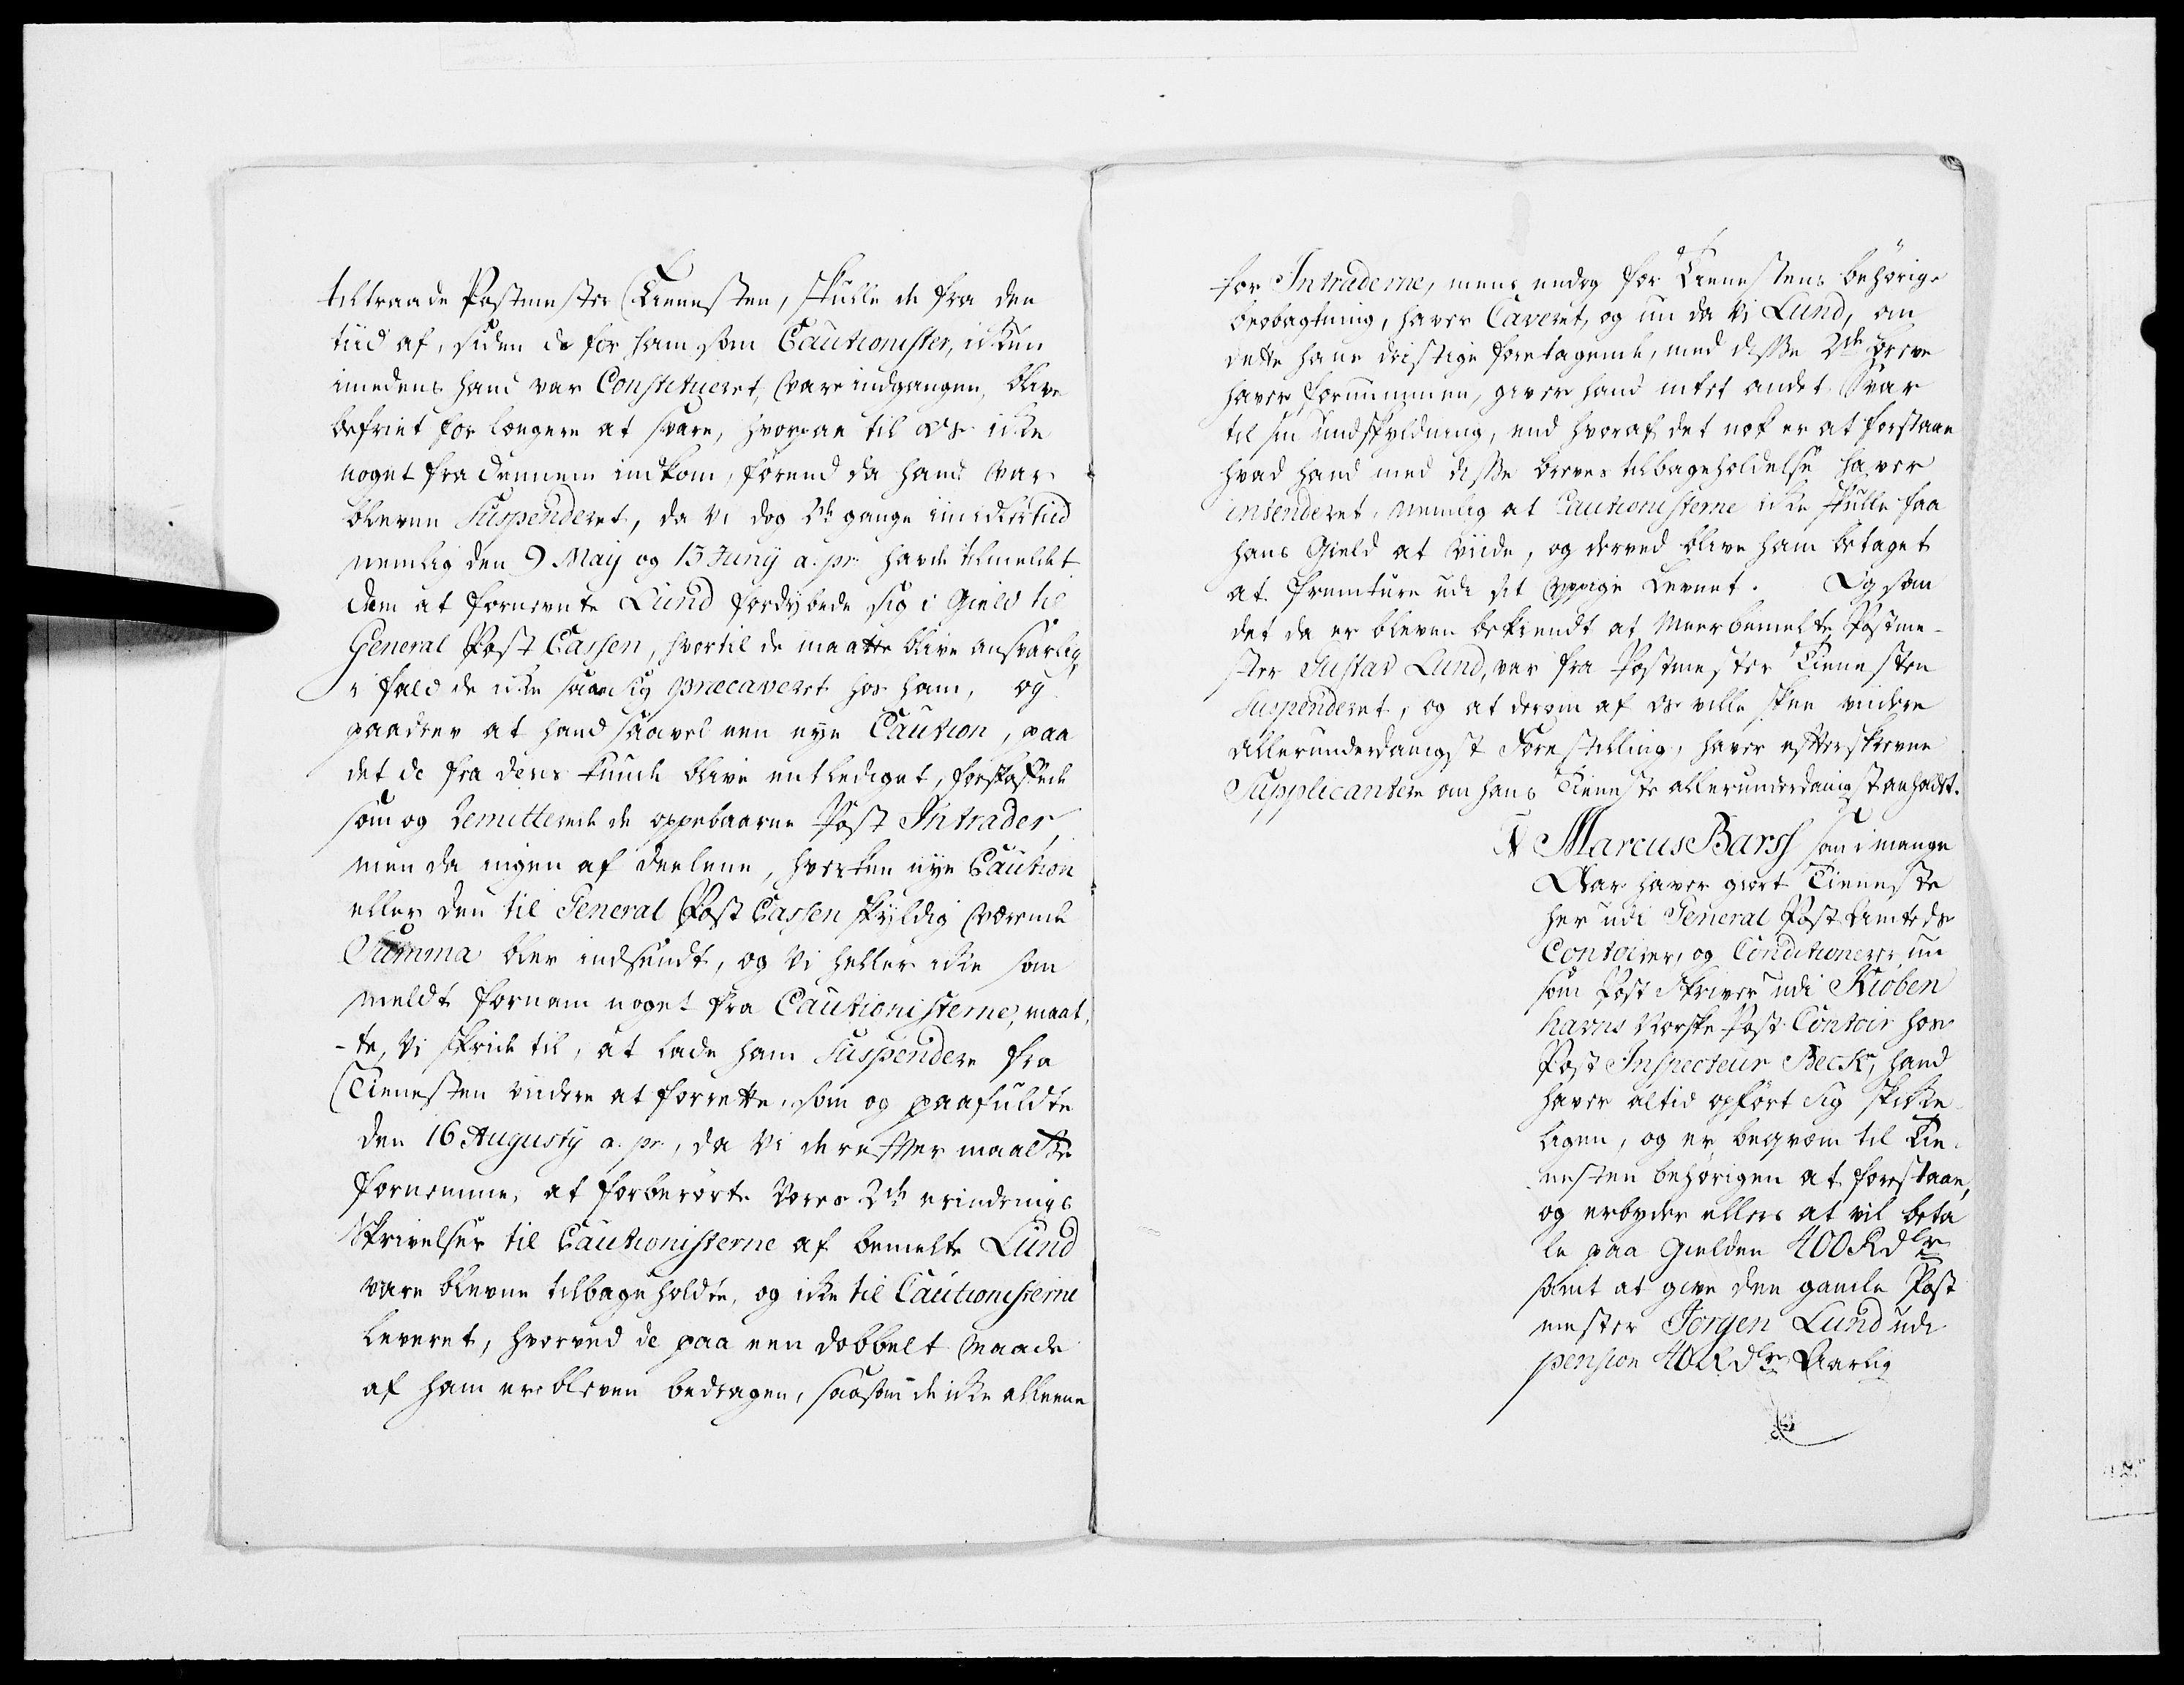 tiltraade Postmester Tienesten, skulle de fra den
tiid af, siden de for ham som Cautionister, ickun
imedens hand var Constitueret, vare indgangen, blive
befriet for længere at svare, hvorpaa til os icke
noget fra dennem indkom, førend da hand var
bleven Suspenderet, da vi dog 2de gange imidlertiid
nemlig den 9 Maij og 13 Junij a. pr. hafde tilmeldet
dem at fornevnte Lund fordybede sig i Gield til
General Post Cassen, hvortil de maatte blive ansvarlig,
i fald de icke saae sig præcaveret hos ham, og
paadrev at hand saavel een nye Caution, paa
det de fra deres kunde blive entlediget, forskaffede
som og Remitterede de oppebaarne Post Intrader,
men da ingen af deelene, hverken nye Caution
eller den til General Post Cassen skyldig værende
Summa blev indsendt, og vi heller icke som
meldt fornam noget fra Cautionisterne, maat-
-te vi skride til, at lade ham Suspendere fra
Tienesten videre at forrette, som og paafuldte
den 16 Augustij a. pr., da vi derefter maatte
fornemme, at forberørte vores 2de erindrings
Skrivelser til Cautionisterne af bemelte Lund
vare blevne tilbageholdte, og icke til Cautionisterne
leveret, hvorved de paa een dobbelt maade
af ham er bleven bedragen, saasom de icke alleene
for Intraderne, mens endog for Tienestens behørige
beobagtning, haver Caveret, og nu da vi Lund, om
dette hans dristige foretagende, med disse 2de breve
haver fornummen, giver hand intet andet Svar
til sin undskyldning, end hvoraf det nok er at forstaae
hvad hand med disse breves tilbageholdelse haver
intenderet, nemlig at Cautionisterne icke skulle faa
hans Gield at viide, og derved blive ham betaget
at fremture udi sit yppige Levnet. Og som
det da er bleven bekiendt at Meerbemelte Postme-
ster Gustav Lund, var fra Postmester Tienesten
Suspenderet, og at derom af os ville skee videre
Allerunderdanigst Forestilling, haver efterskrevne
Supplicantere om hans Tieneste allerunderdanigst anholdt.
Marcus Barss som i mange
Aar haver giort Tieneste
her udi General Post Amtets
Contoirer, og Conditionerer nu
som Post Skriver udi Kiøben
havns Norske Post Contoir hos
Post Inspecteur Beck, hand
haver altid opført sig skicke-
ligen, og er beqvem til Tie-
nesten behørigen at forestaae,
og erbyder ellers at vil beta
le paa Gielden 400 Rdlr
samt at give den gamle Post
mester Jørgen Lund udi
pension 40 Rdlr Aarlig